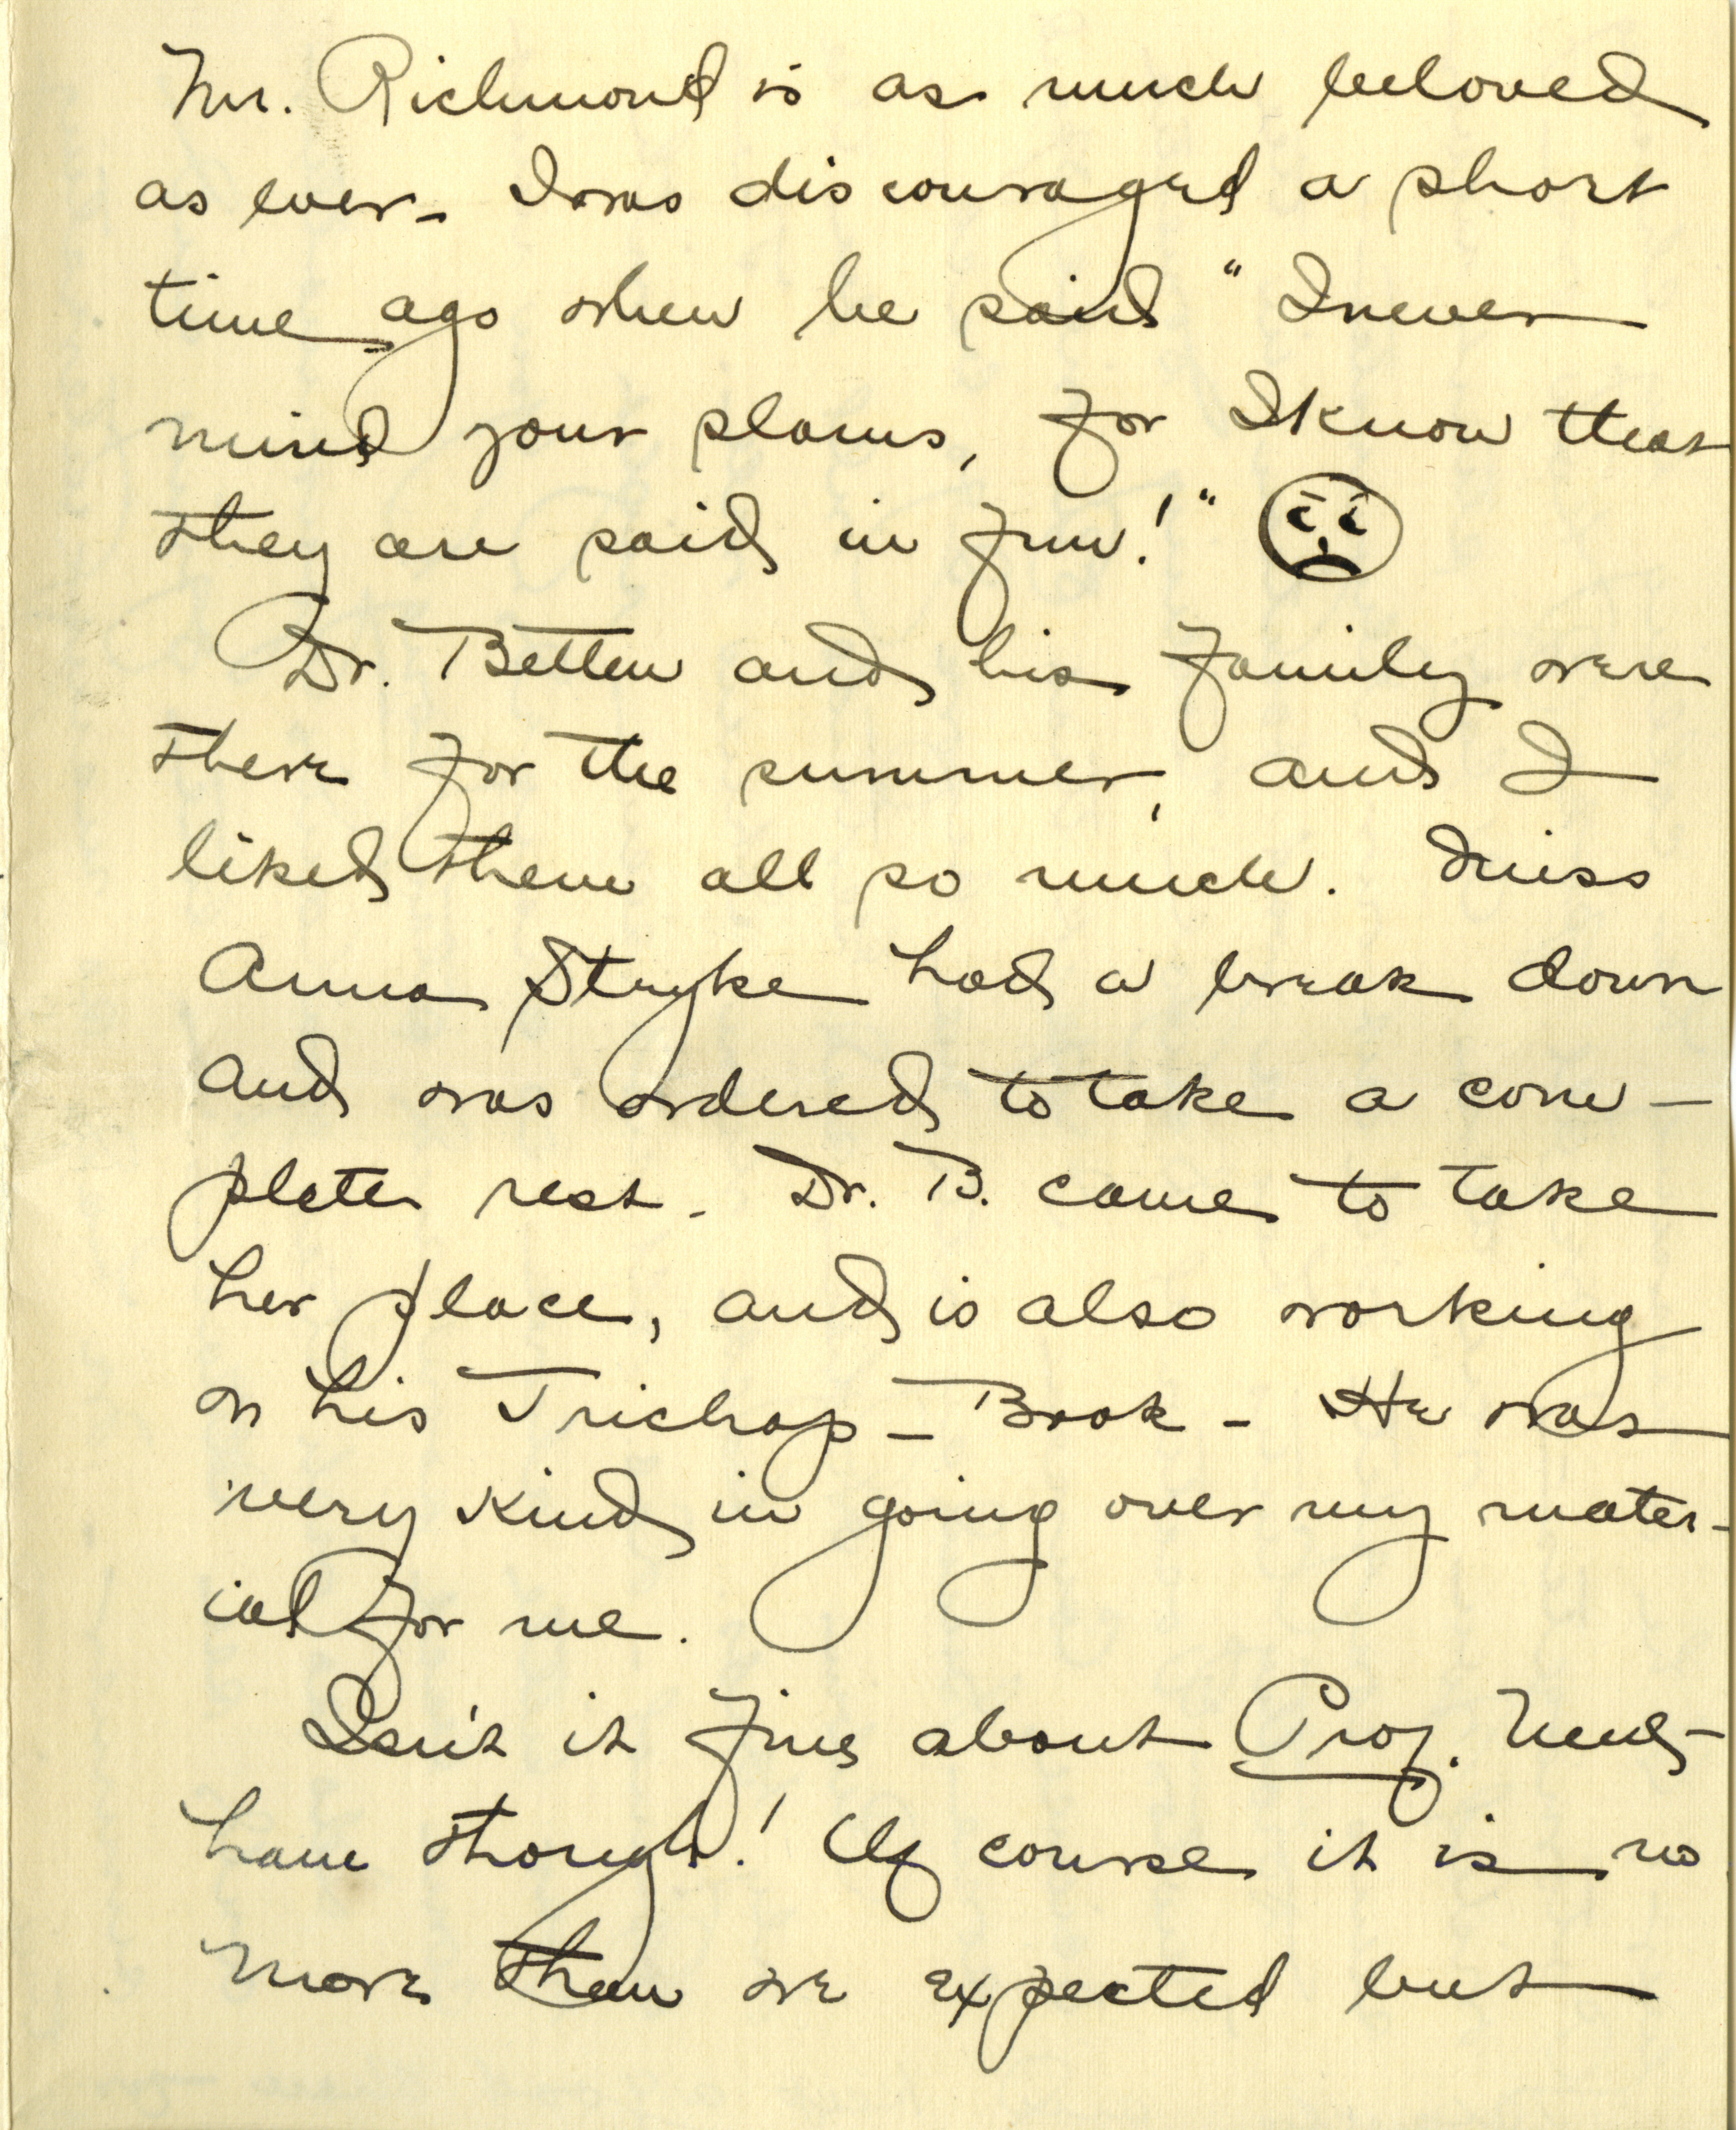 Mr. Richmond is as much beloved
as ever - I was discouraged a short
time ago when he said "I never
mind your plans, for I know that
they are said in fun!"
Dr. Betten and his family were
there for the summer, and I
liked them all so much. Miss
Anna Stryke had a break down
and was ordered to take a com-
plete rest - Dr. B. came to take
her place, and is also working
on his Trichop - Book - He was
very kind in going over my mater-
ial for me.
Isn't it fine about Prof. Need-
ham though! Of course it is no
more than we expected but